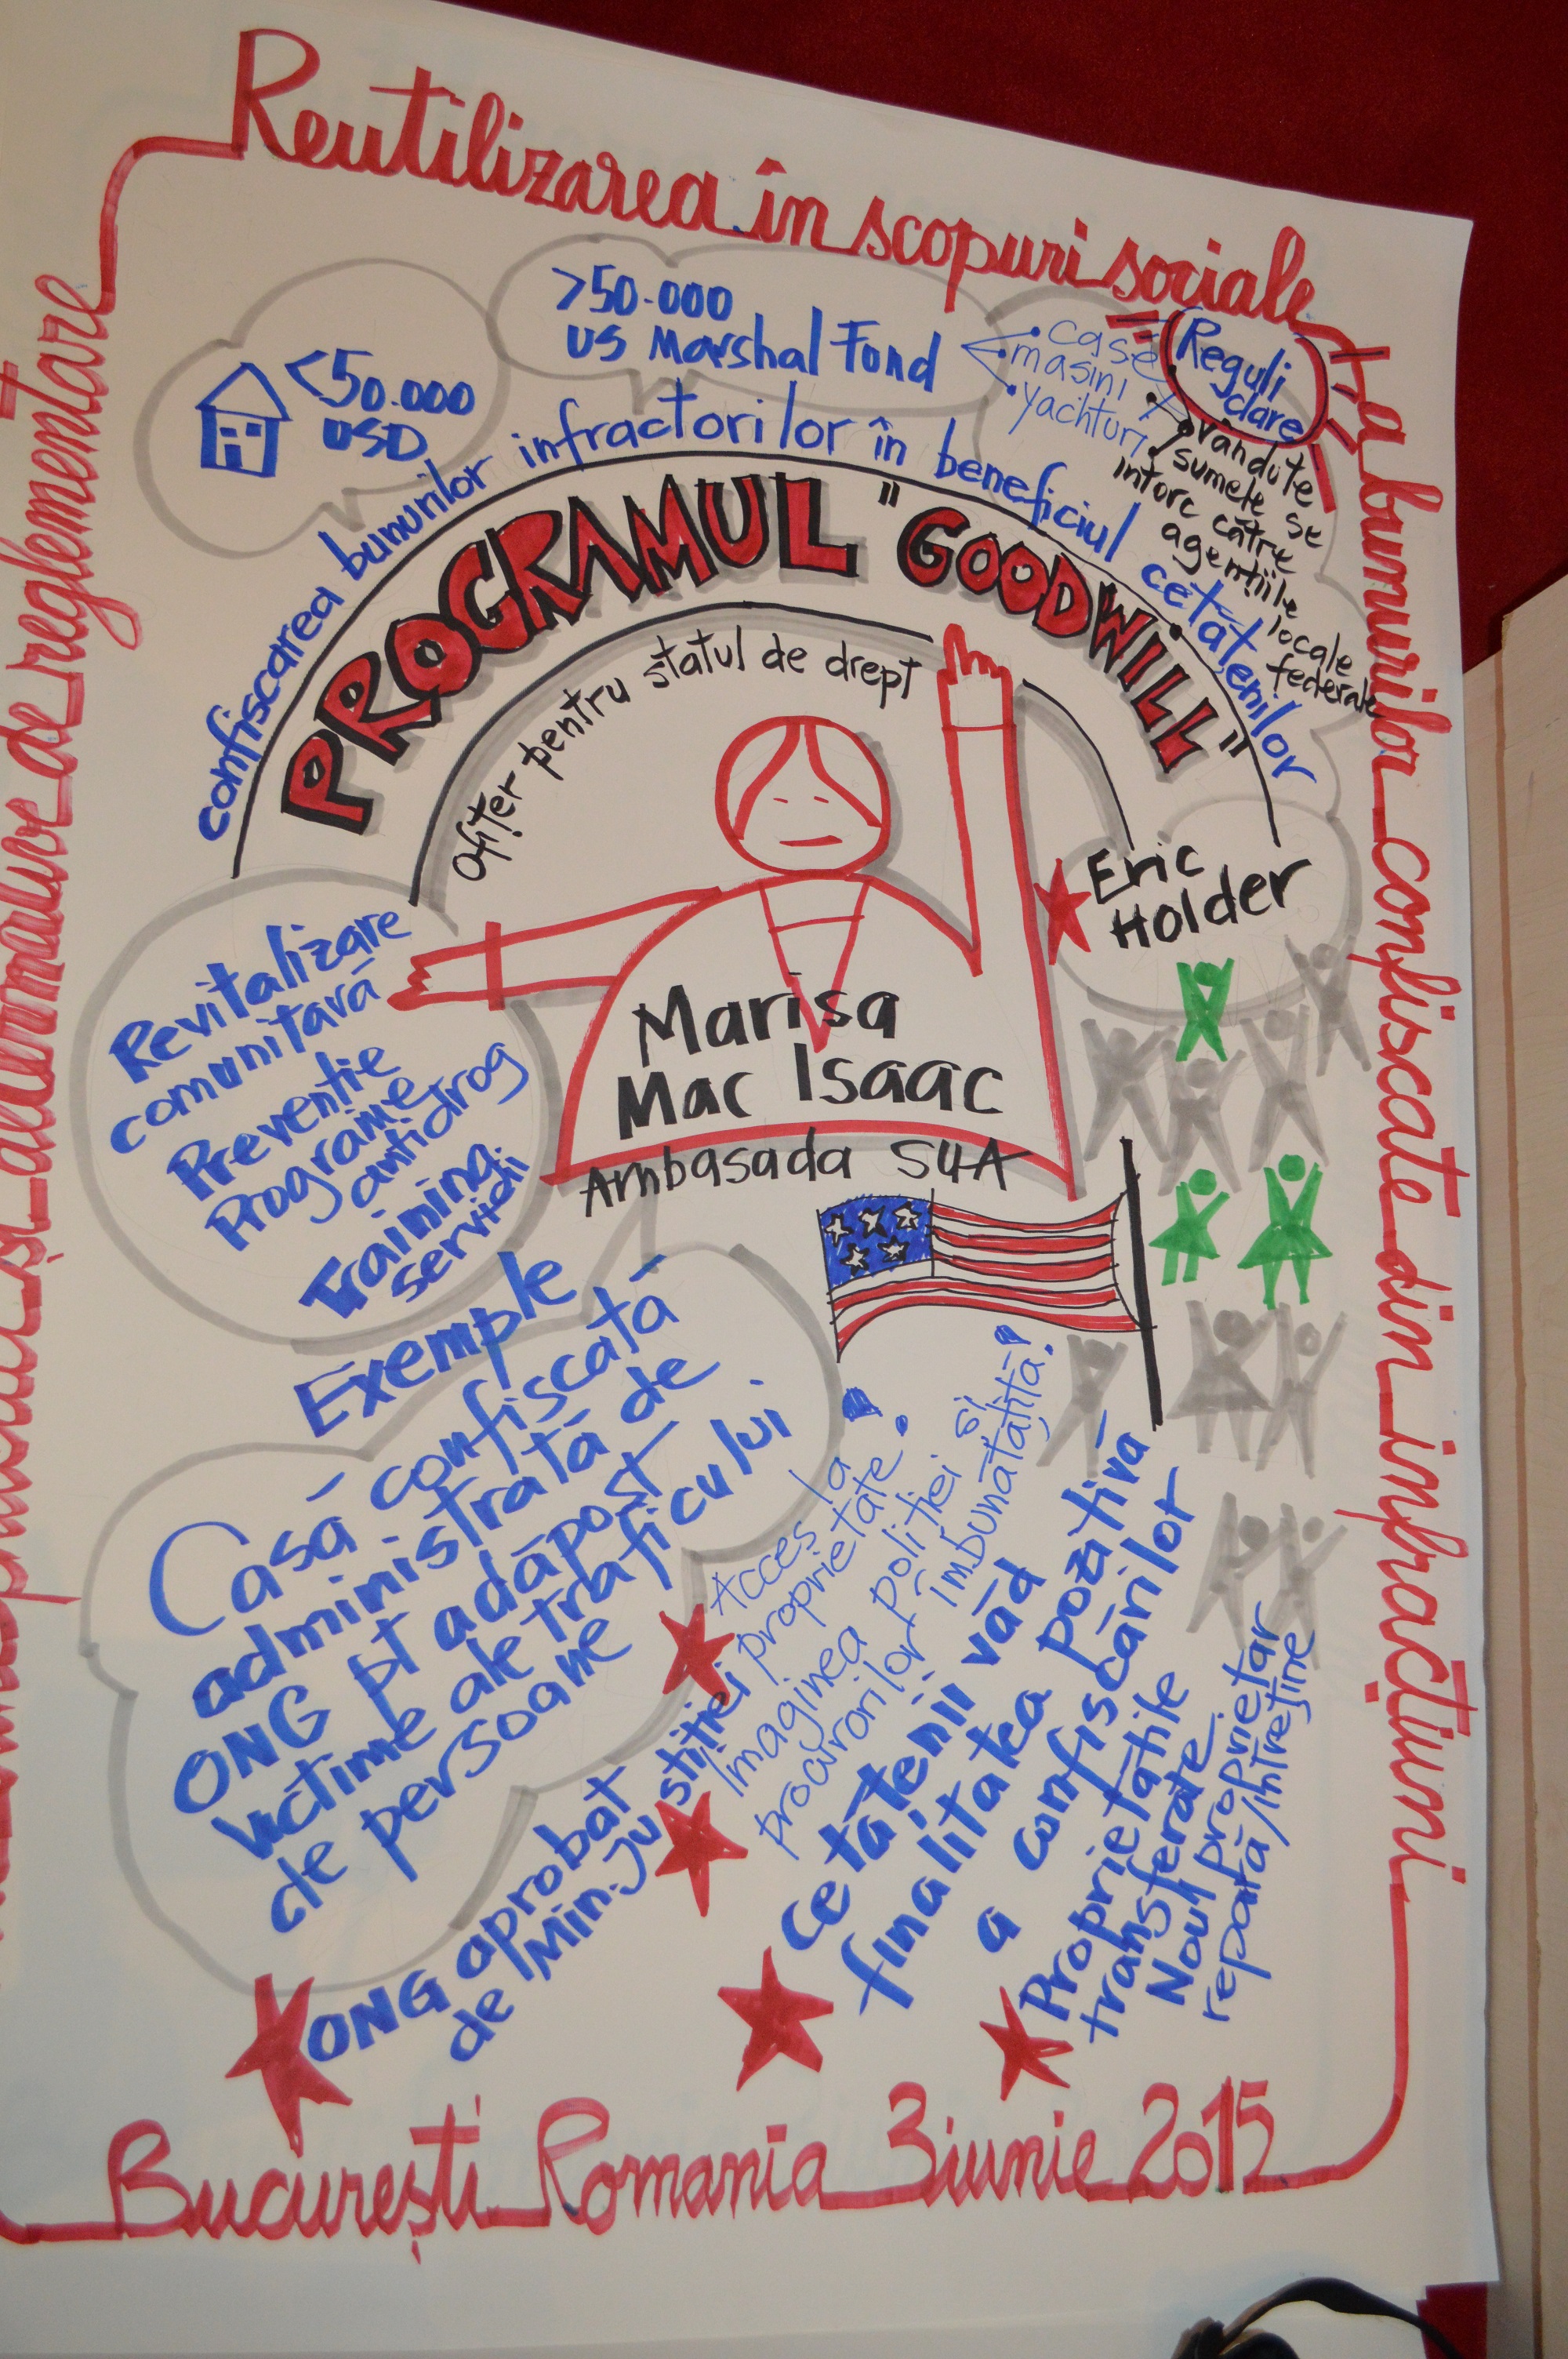 Reutilizarea în scopuri sociale
a bunurilor confiscate din infracțiuni
București Romania 3 iunie 2015
și alternative de reglementare
<50.000
USD
>50.000
US Marshal Fond
case
masini
yachturi
Reguli
clare
vandute
sumele se
intorc către
agențiile
locale
federale
confiscarea bunurilor infractorilor în beneficiul cetățenilor
PROGRAMUL "GOODWILL"
Ofițer pentru statul de drept
Eric
Holder
Marisa
Mac Isaac
Ambasada SUA
Revitalizare
comunitară
Prevenție
Programe
antidrog
Training
servicii
Exemple
Casă confiscată
administrată de
ONG pt adăpost
victime ale traficului
de persoane
ONG aprobat
de Min. Justiției
Acces la
proprietate!
Imaginea poliției și
procurorilor îmbunătățită!
Cetățenii văd
finalitatea pozitivă
a confiscărilor
Proprietățile
transferate
Noul proprietar
repară/întreține